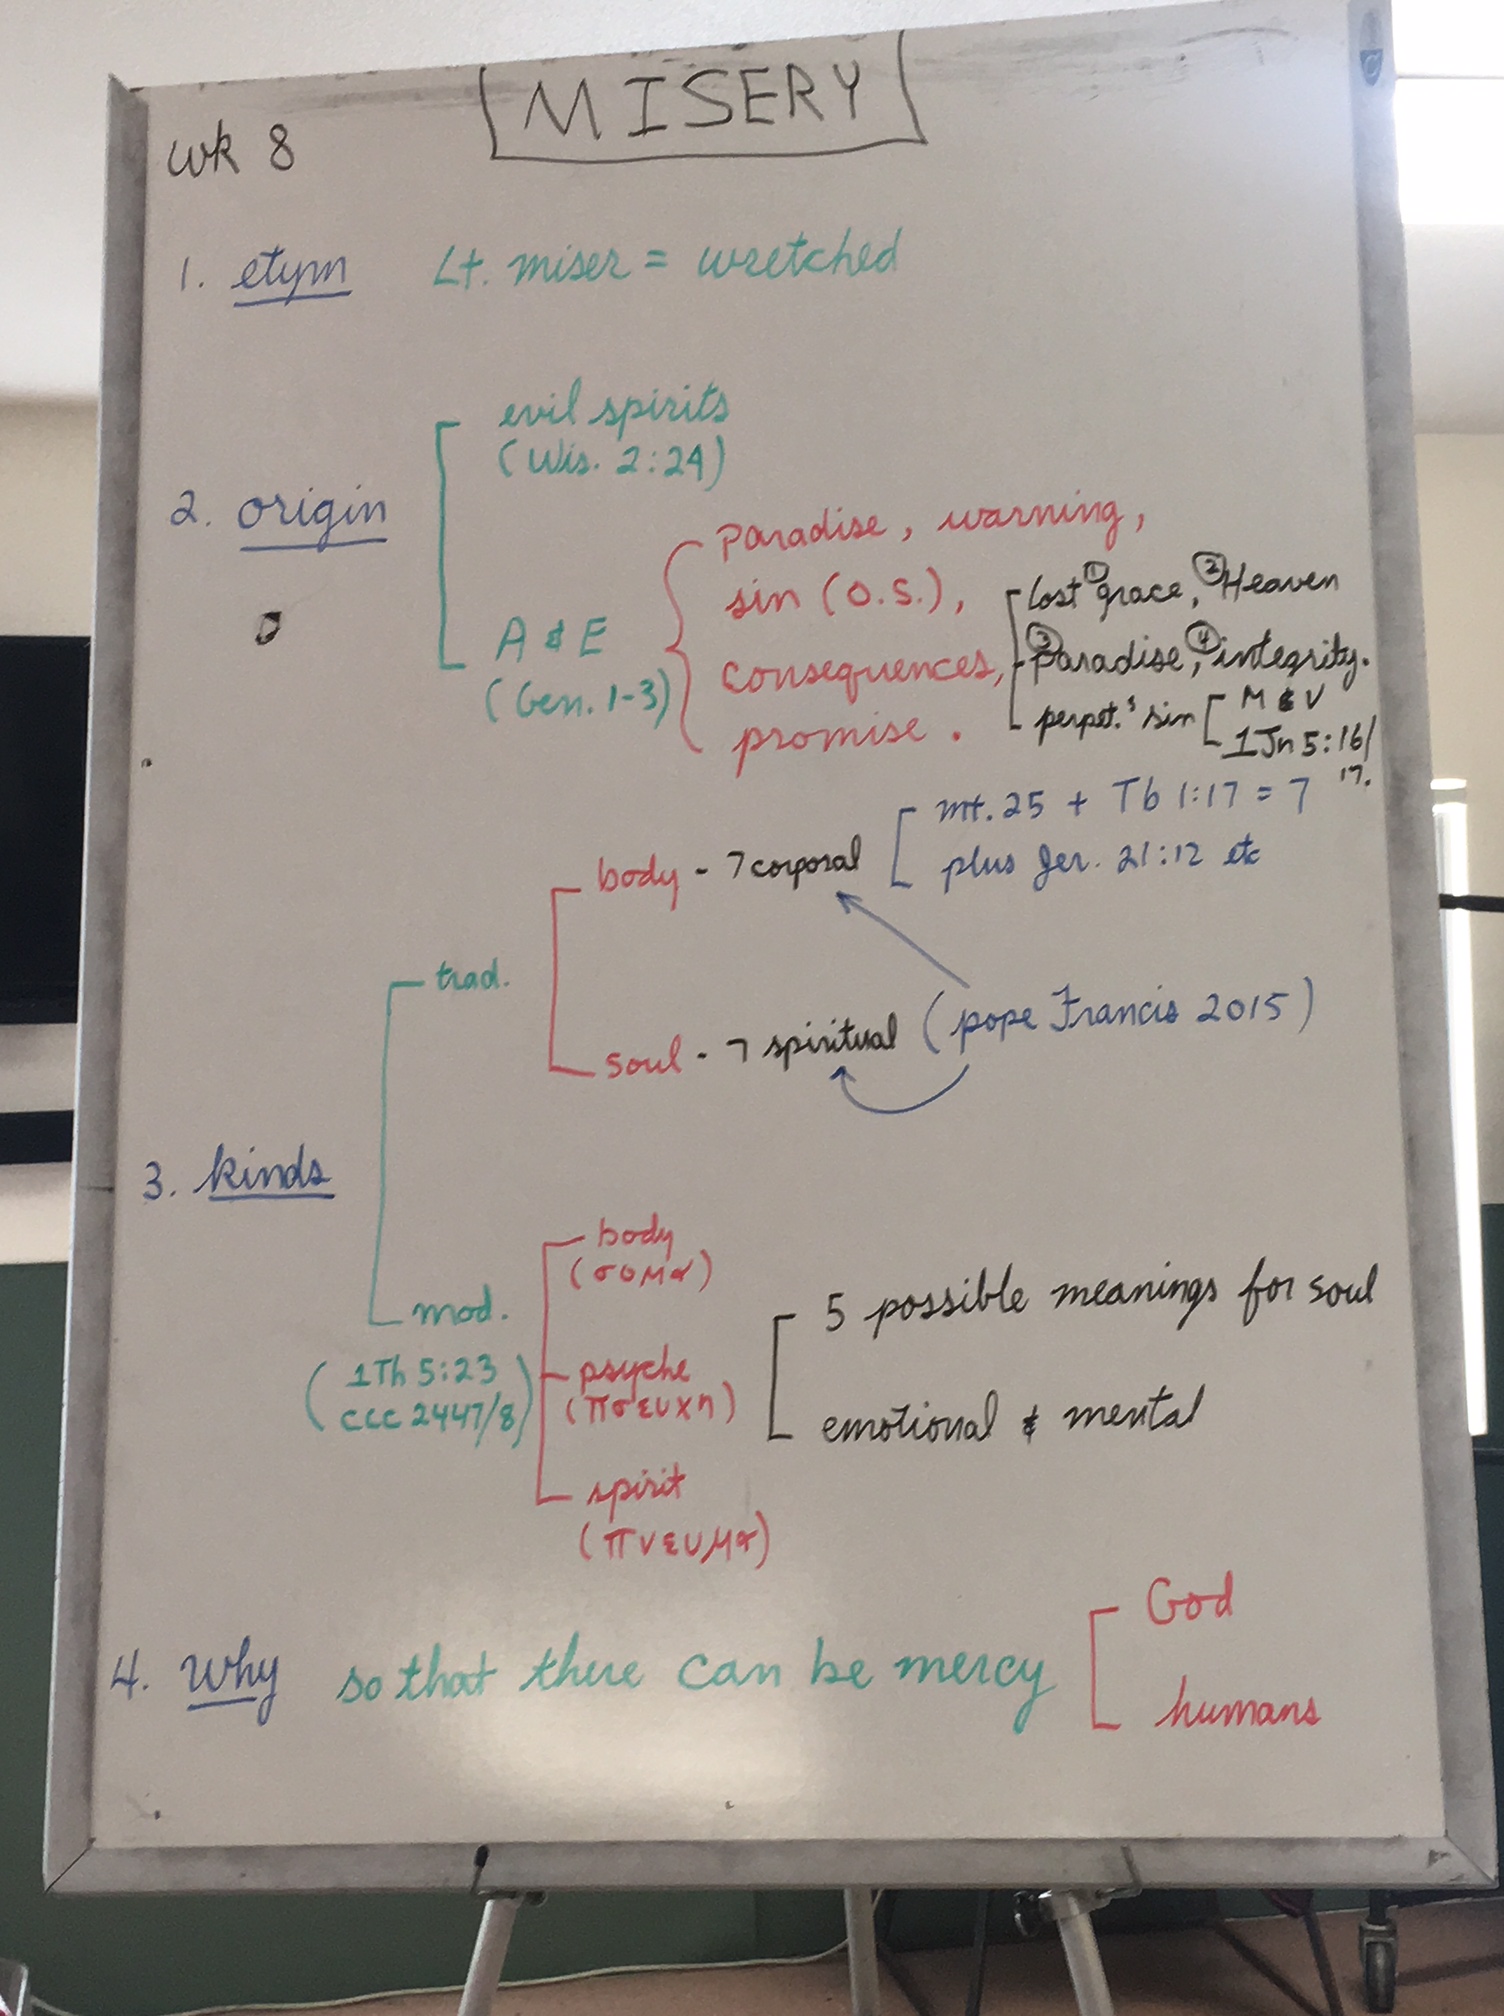 MISERY
wk 8
1. etym Lt. miser = wretched
2. origin
evil spirits
(Wis. 2:24)
A & E
(Gen. 1-3)
paradise, warning,
sin (O.S.),
consequences,
promise.
lost ① grace, ② Heaven
③ paradise, ④ integrity.
perpet. sin
M & V
1 Jn 5:16/
17.
3. kinds
trad.
body - 7 corporal
mt. 25 + Tb 1:17 = 7
plus Jer. 21:12 etc
soul - 7 spiritual (pope Francis 2015)
mod.
(1Th 5:23
CCC 2447/8)
body
(σομα)
psyche
(πσευχη)
5 possible meanings for soul
emotional & mental
spirit
(πνευμα)
4. why so that there can be mercy
God
humans